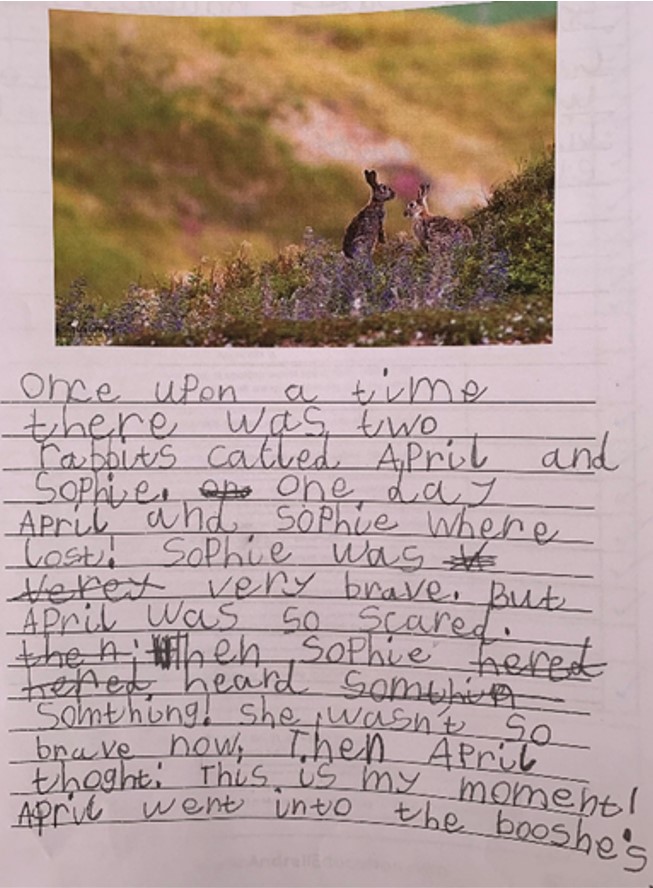 Once upon a time
there was two
rabbits called April and
Sophie. on one day
April and Sophie where
lost! Sophie was
verey very brave. But
April was so scared.
then: Then Sophie hered
hered heard somthin
Somthing! she wasn't so
brave now. Then April
thoght: This is my moment!
April went into the booshe's